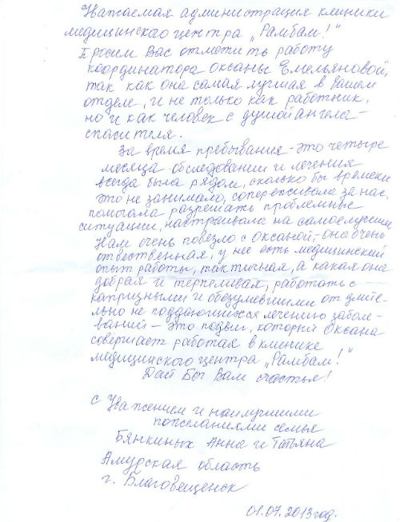 Уважаемая администрация клиники
медицинскао центра „Рамбам!"
Просим Вас отметить работу
координатора Оксаны Емельяновой,
так как она самая лучшая в Вашем
отделе, и не только как работник,
но и как человек с душой ангела-
спасителя.
За время пребывания - это четыре
месяца обследовании и лечения
всегда была рядом, сколько бы времени
это не занимало, сопереживала за нас,
помогала разрешать проблемные
ситуации, настраивала на самое лучшее
Нам очень повезло с Оксаной, - она очень
ответственная, у нее есть медицинский
опыт работы, тактичная, а какая она
добрая и терпеливая, работать с
капризными и обезумевшими от
не поддающихся лечению забол-
ваний - это подвиг, который Оксана
совершает работая в клинике
медицинского центра „Рамбам!"
Дай Бог Вам счастья!
с Уважением и наилучшими
пожеланиями семья
Бянкиных Анна и Татьяна
Амурская область
г. Благовещенск
01.07.2013 год.